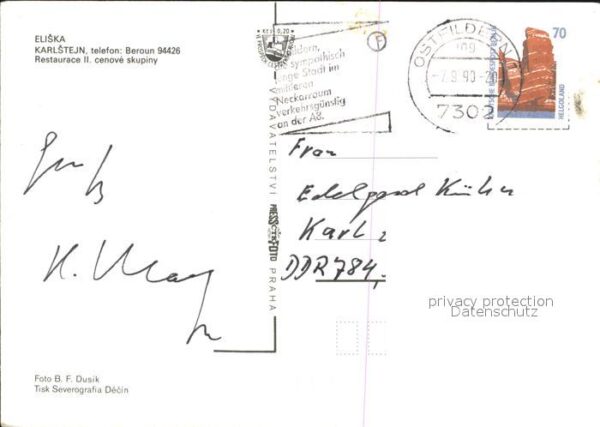 ELIŠKA
KARLŠTEJN, telefon: Beroun 94426
Restaurace II. cenové skupiny
Kčs 0,20
sympathisch
junge Stadt im
mittleren
Neckarraum
verkehrsgünstig
an der A8.
F
OSTFILDERN 1
-7.9.90-20
7302
70
DEUTSCHE BUNDESPOST BERLIN
HELGOLAND
VYDAVATELSTVÍ PRESSFOTO PRAHA
ČTK
Gruß
Frau
Edelgard Kühn
Karl
DDR 784
privacy protection
Datenschutz
Foto B. F. Dusík
Tisk Severografia Děčín